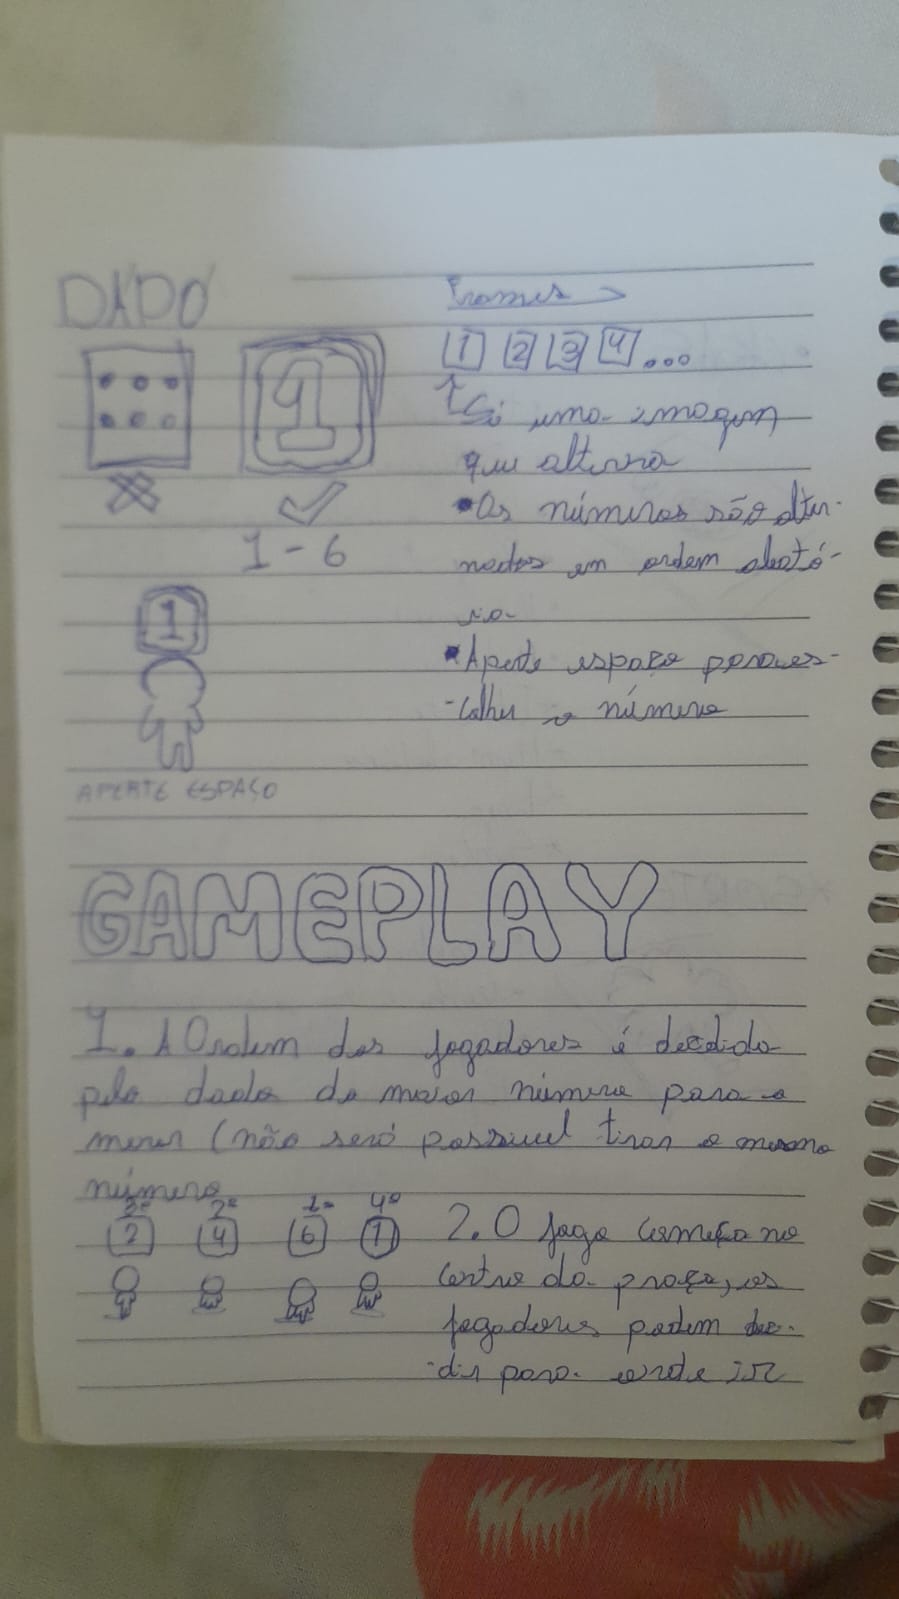 DADO
1
1 - 6
1
APERTE ESPAÇO
Frames >
1 2 3 4 ...
Si uma imagem
que alterna
• Os números são alter-
nados em ordem aleató-
ria
• Aperte espaço para es-
-colher o número
GAMEPLAY
1. A Ordem dos jogadores é decidida
pelo dado do maior número para o
menor (não será possivel tirar o mesmo
número
3º 2º 1º 4º
2 4 6 1
2. O jogo começa no
centro da praça, os
jogadores podem de-
-dir para onde ir